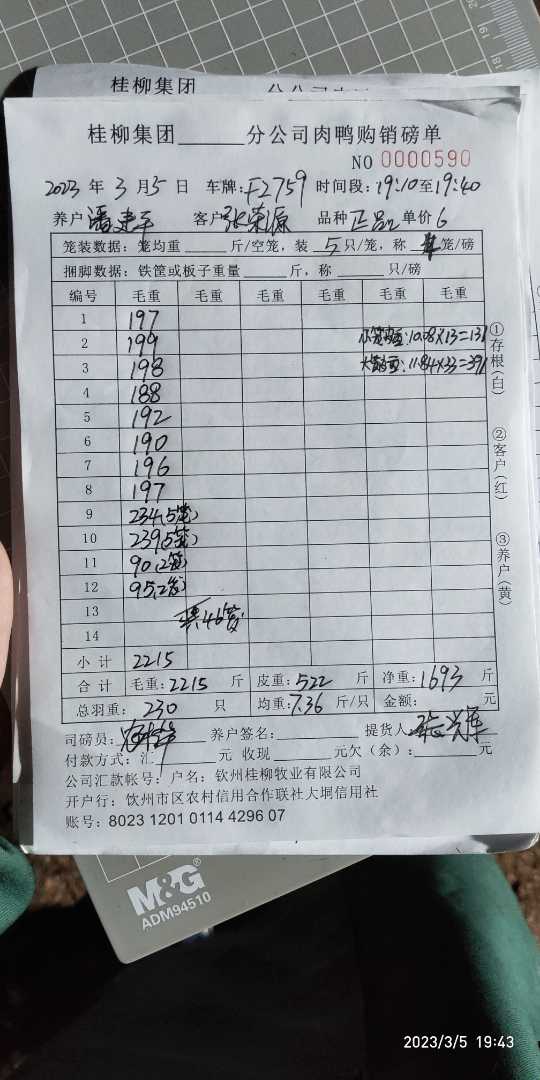 桂柳集团
桂柳集团______分公司肉鸭购销磅单
NO 0000590
2023 年 3 月 5 日 车牌:F2759 时间段:19:10至19:40
养户 潘 客户 张荣源 品种 正品 单价 6
笼装数据：笼均重______斤/空笼，装 5 只/笼，称 笼/磅
捆脚数据：铁筐或板子重量______斤，称______只/磅
编号 毛重 毛重 毛重 毛重 毛重 毛重
1 197
2 199 :10.08×13=131
3 198 :11.84×33=391
4 188
5 192
6 190
7 196
8 197
9 234(5笼)
10 239(5笼)
11 90(2笼)
12 95(2笼)
13 共46笼
14
小 计 2215
合 计 毛重:2215 斤 皮重:522 斤 净重:1693 斤
总羽重: 230 只 均重:7.36 斤/只 金额: 元
司磅员: 养户签名: 提货人
付款方式：汇______元 收现______元欠（余）:______元
公司汇款帐号：户名：钦州桂柳牧业有限公司
开户行：饮州市区农村信用合作联社大垌信用社
账号：8023 1201 0114 4296 07
①存根(白)
②客户(红)
③养户(黄)
M&G®
ADM94510
2023/3/5 19:43